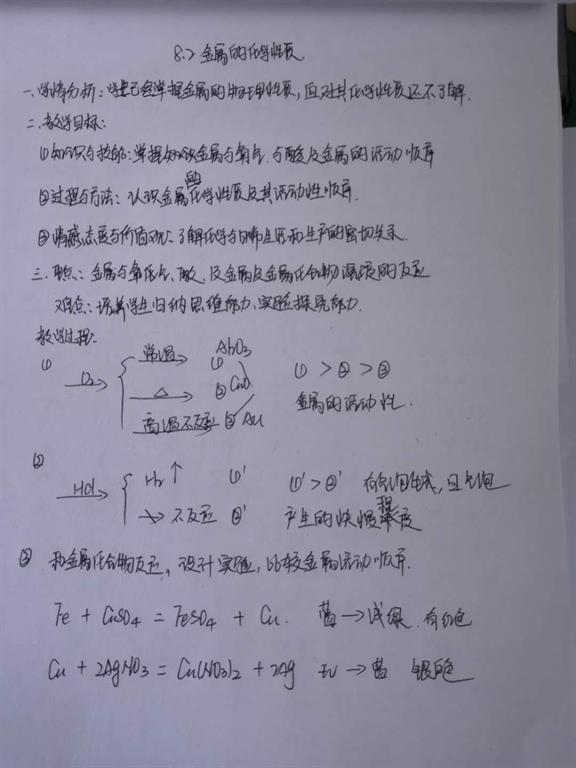 8.2 金属的化学性质
一、学情分析：学生已经掌握金属的物理性质，但对其化学性质还不了解.
二、教学目标：
①知识与技能：掌握知识金属与氧气、与酸及金属的活动顺序
②过程与方法：认识金属的化学性质及其活动性顺序.
③情感态度与价值观：了解化学与日常生活和生产的密切关系.
三、重点：金属与氧气、酸、及金属及金属化合物溶液的反应
难点：培养学生归纳思维能力、实验探究能力.
教学过程：
① O2 常温 Al2O3 ①
△ ② CuO ① > ② > ③
高温不反应 ③ Au 金属的活动性.
② HCl H2↑ ①' ①' > ②' 有气泡生成，且气泡
不反应 ②' 产生的快慢程度
③ 和金属化合物反应，设计实验，比较金属活动顺序.
Fe + CuSO4 = FeSO4 + Cu. 蓝→浅绿 有红色
Cu + 2AgNO3 = Cu(NO3)2 + 2Ag 无→蓝 银白色